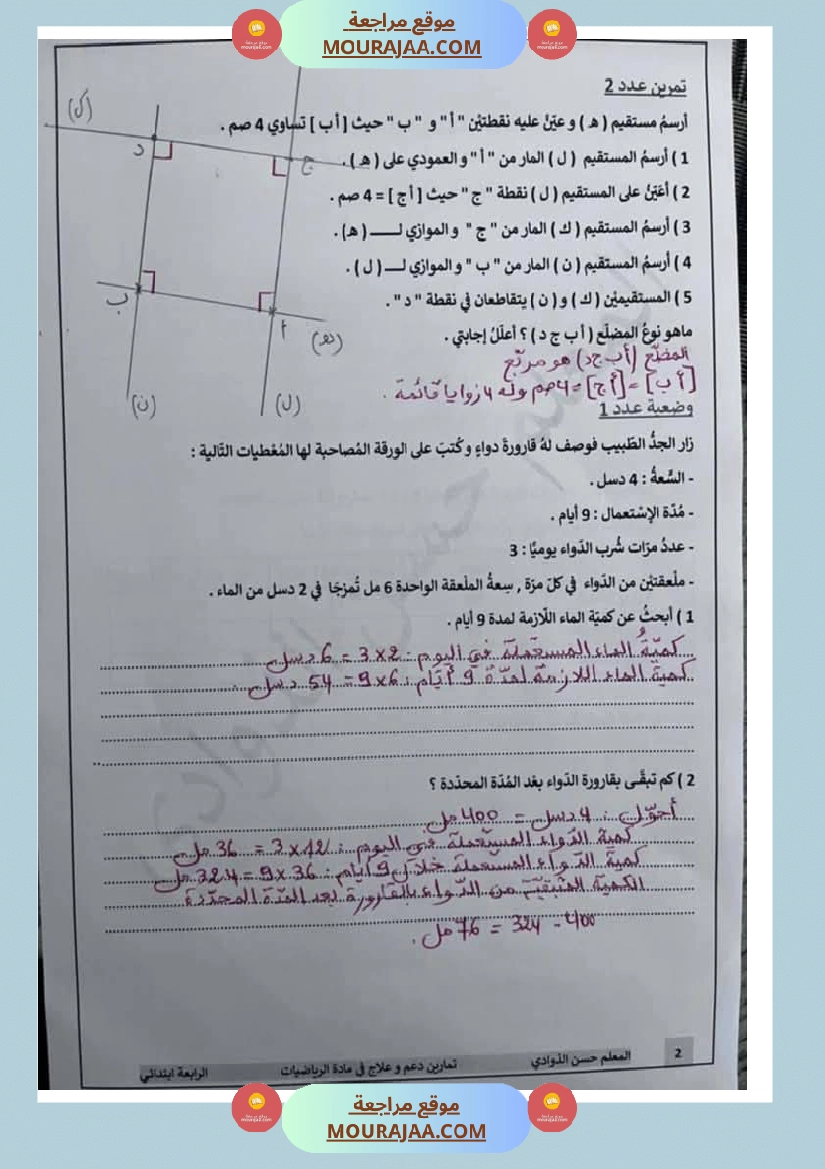 موقع مراجعة
MOURAJAA.COM
تمرين عدد 2
أرسمُ مستقيم ( ه ) و عيّنْ عليه نقطتيْن " أ " و " ب " حيث [ أ ب ] تساوي 4 صم .
1 ) أرسمُ المستقيم ( ل ) المار من " أ " و العمودي على ( ه ) .
2 ) أعَيّنُ على المستقيم ( ل ) نقطة " ج " حيث [ أ ج ] = 4 صم .
3 ) أرسمُ المستقيم ( ك ) المار من " ج " و الموازي لـــــ ( ه) .
4 ) أرسمُ المستقيم ( ن ) المار من " ب " و الموازي لـــ ( ل ) .
5 ) المستقيميْن ( ك ) و ( ن ) يتقاطعان في نقطة " د " .
ماهو نوعُ المضلّع ( أ ب ج د ) ؟ أعلّلُ إجابتي .
المضلّع (أ ب ج د) هو مربّع
[أ ب] = [أ ج] = 4 صم وله 4 زوايا قائمة .
(ك)
د
ج
ب
أ
(ه)
(ن)
(ل)
وضعية عدد 1
زار الجدُّ الطّبيب فوصف لهُ قارورةَ دواءٍ و كُتبَ على الورقة المُصاحبة لها المُعْطيات التّالية :
- السِّعةُ : 4 دسل .
- مُدّة الإسْتعمال : 9 أيام .
- عددُ مرّات شُرب الدّواء يوميًّا : 3
- ملْعقتيْن من الدّواء في كلّ مرّة , سِعةُ الملْعقة الواحدة 6 مل تُمزجَا في 2 دسل من الماء .
1 ) أبحثُ عن كميّة الماء اللّازمة لمدة 9 أيام .
كميّةُ الماء المستعملة في اليوم : 2×3 = 6 دسل
كميّة الماء اللازمة لمدّة 9 أيّام : 6×9 = 54 دسل .
2 ) كم تبقّـى بقارورة الدّواء بعْد المُدّة المحدّدة ؟
أحوّل : 4 دسل = 400 مل
كمية الدّواء المستعملة في اليوم : 12×3 = 36 مل
كمية الدّواء المستعملة خلال 9 أيام : 36×9 = 324 مل
الكمية المتبقيّة من الدّواء بالقارورة بعد المدّة المحدّدة
400 - 324 = 76 مل .
2
المعلم حسن الذوادي
تمارين دعم و علاج في مادة الرياضيات
الرابعة ابتدائي
موقع مراجعة
MOURAJAA.COM